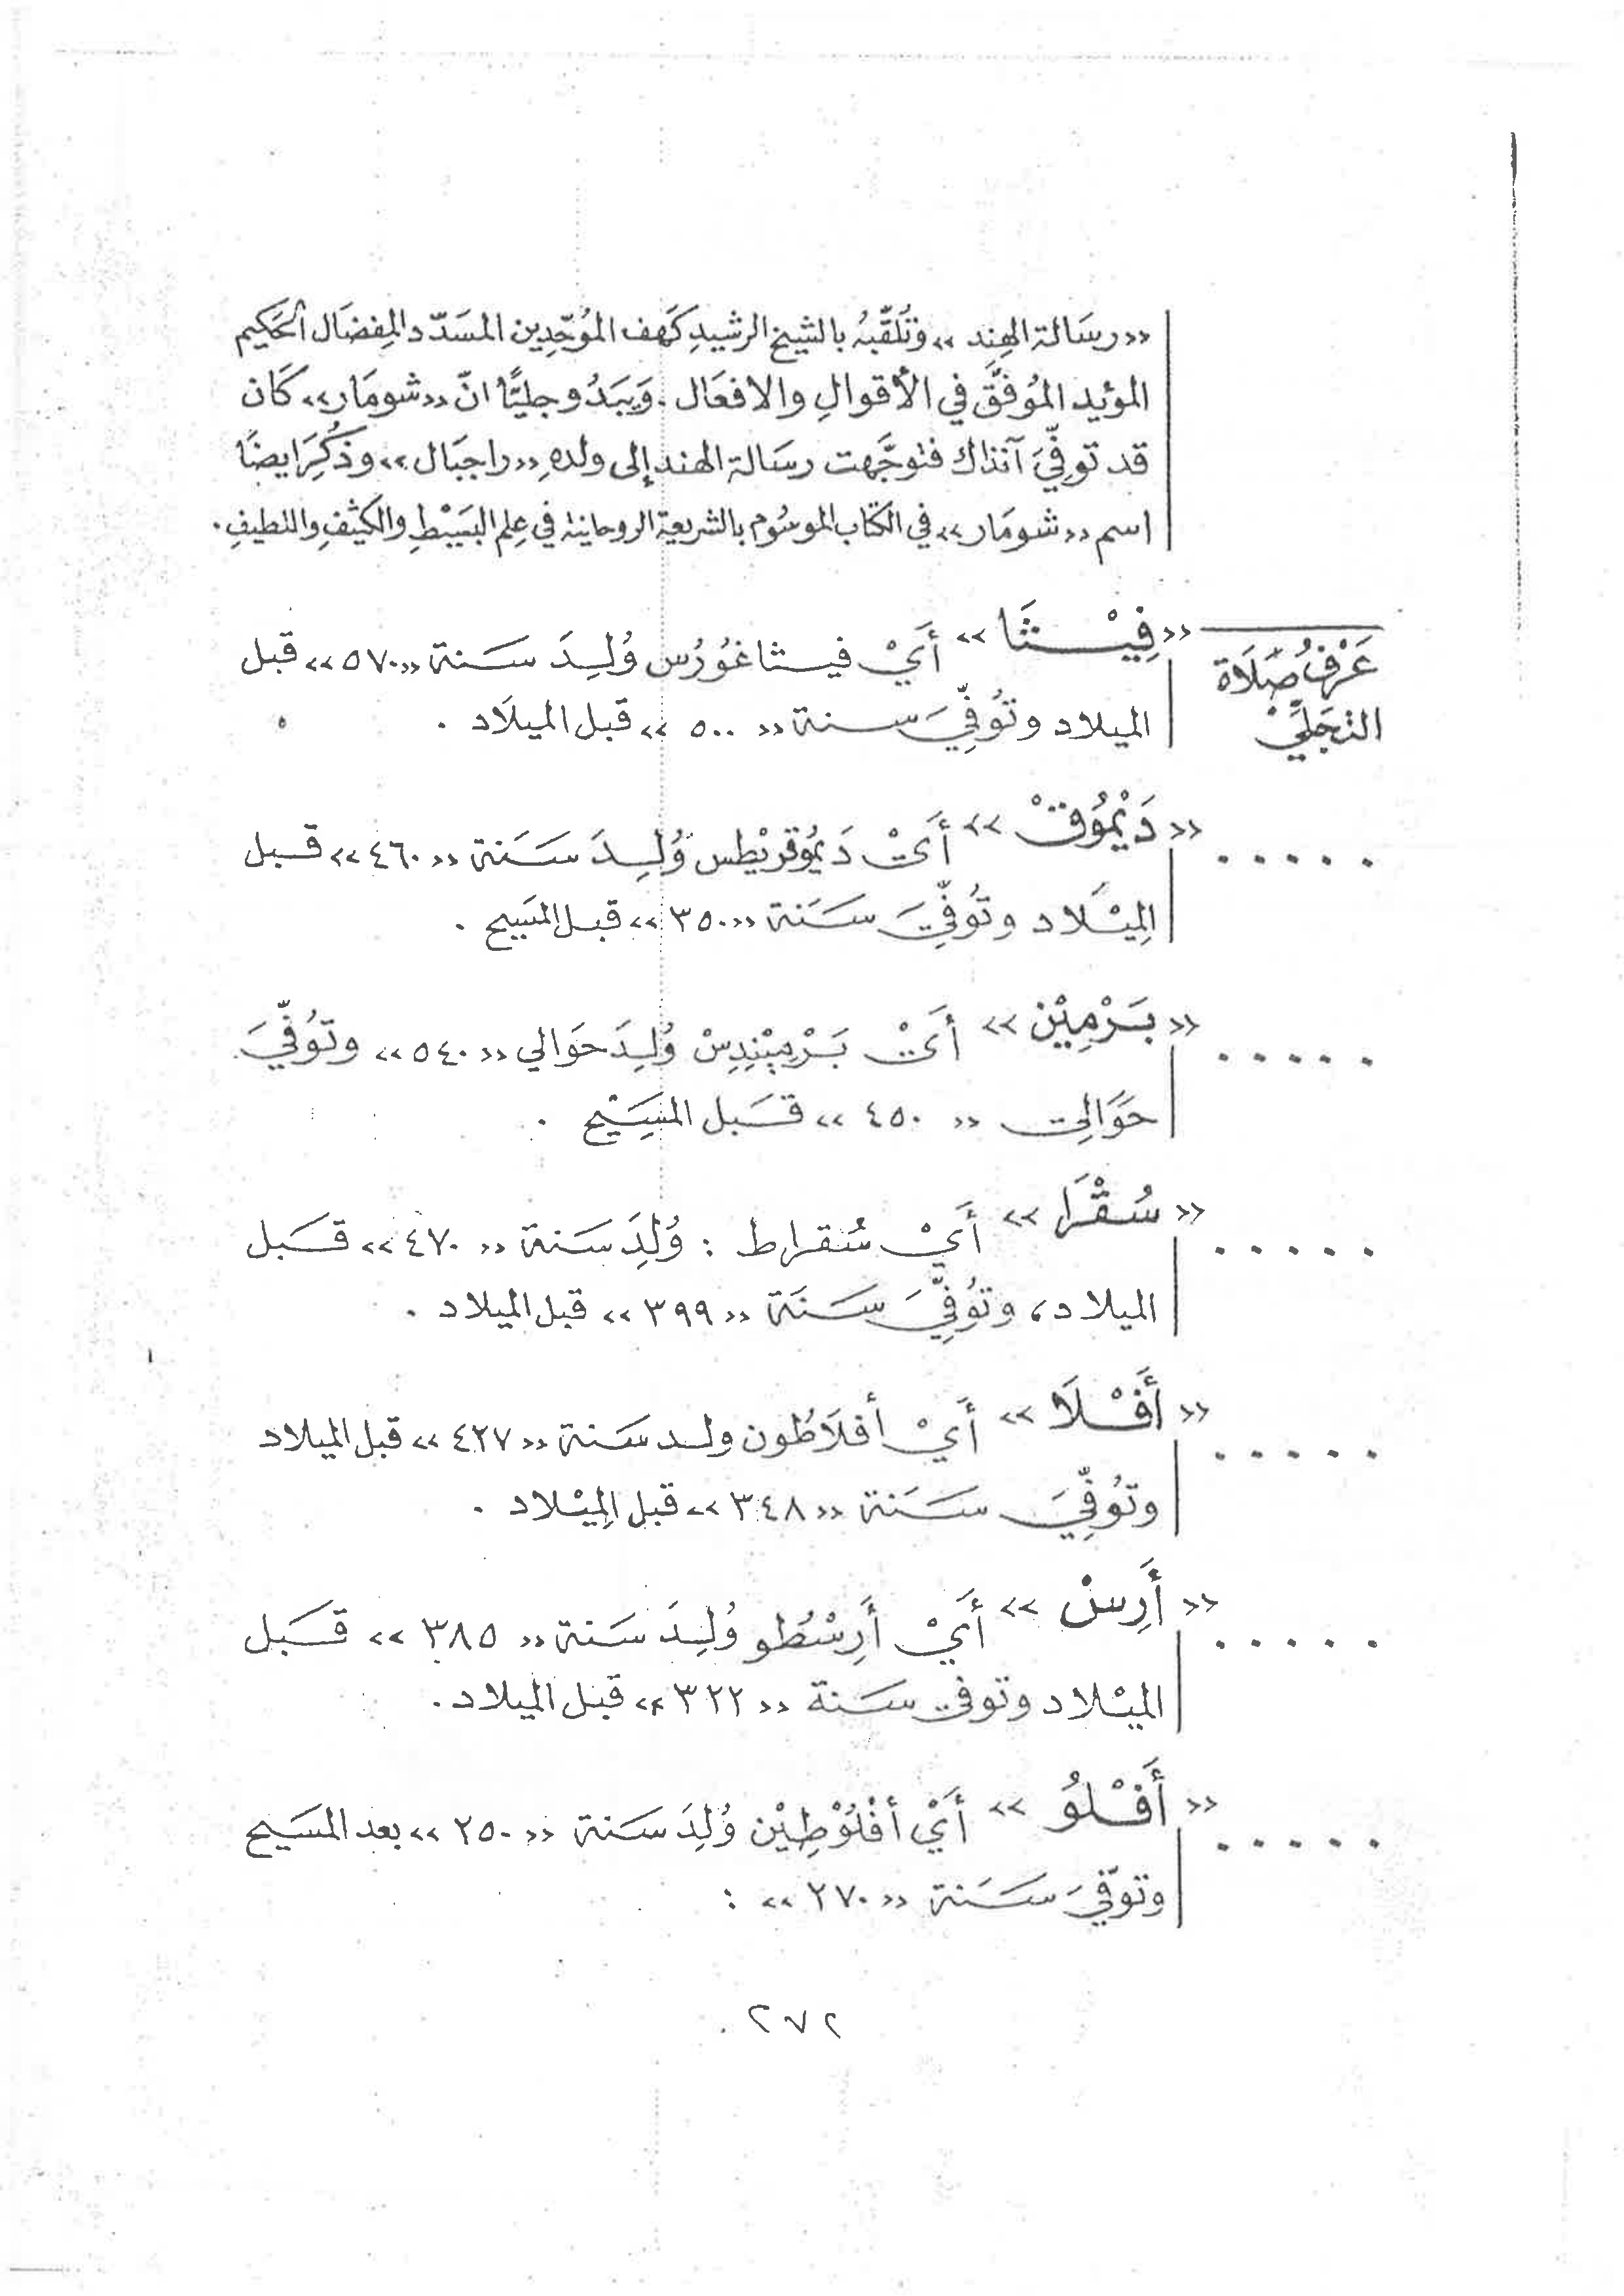 «رسَالة الهِند» وتُلَقّبُه بالشيخ الرشيدِ كَهف المُوَحِّدِين المسَدّد المِفضَال الحَكِيم
المؤيد المُوفَّق في الأقوالِ والافعَال. وَيَبَدُو جليًّا انّ «شومَار» كَان
قد توفِّيَ آنذاك فتوجَّهت رسَالة الهند إلى ولدهِ «راجبَال» وذُكِرَ ايضًا
اسم «شومَار» في الكتاب الموسُوم بالشريعة الروحانية في عِلم البَسِيْطِ والكثيفِ واللطيفِ.
عَرْفُ صَلَاة
التجَلّيْ
«فِيْـثَا» أَيْ فيثاغُوْرُس وُلِدَ سَنة «٥٧٠» قبل
الميلاد وتُوُفِّيَ سنة «٥٠٠» قبل الميلَاد.
..... «دَيْمُوقْ» أَيْ دَيمُوقرِيْطس وُلِدَ سَنَة «٤٦٠» قبل
المِيْلَاد وتُوُفِّيَ سَنَة «٣٥٠» قبل المَسَيح.
..... «بَرْمِيْن» أَيْ بَرْمِيْنِدِسْ وُلِدَ حَوَالي «٥٤٠» وتُوُفِّيَ
حَوَالِي «٤٥٠» قَبل المَسِيْح.
..... «سُقْرَا» أَيْ سُقراط : وُلِدَ سَنة «٤٧٠» قَبل
الميلاد، وتُوُفِّيَ سَنَة «٣٩٩» قبل الميلاد.
..... «أَفْلَا» أَيْ أفلَاطُون ولد سَنة «٤٢٧» قبل الميلاد
وتُوُفِّيَ سَنة «٣٤٨» قبل المِيْلاد.
..... «أَرِسْ» أَيْ أَرِسْطُو وُلِدَ سَنة «٣٨٥» قَبل
الميْلاد وتوفي سَنة «٣٢٢» قبل الميلاد.
..... «أَفْلُو» أَيْ أفْلُوْطِيْن وُلِدَ سَنة «٢٥٠» بعد المسَيح
وتوّفيَ سَنة «٢٧٠» :
٢٧٢.